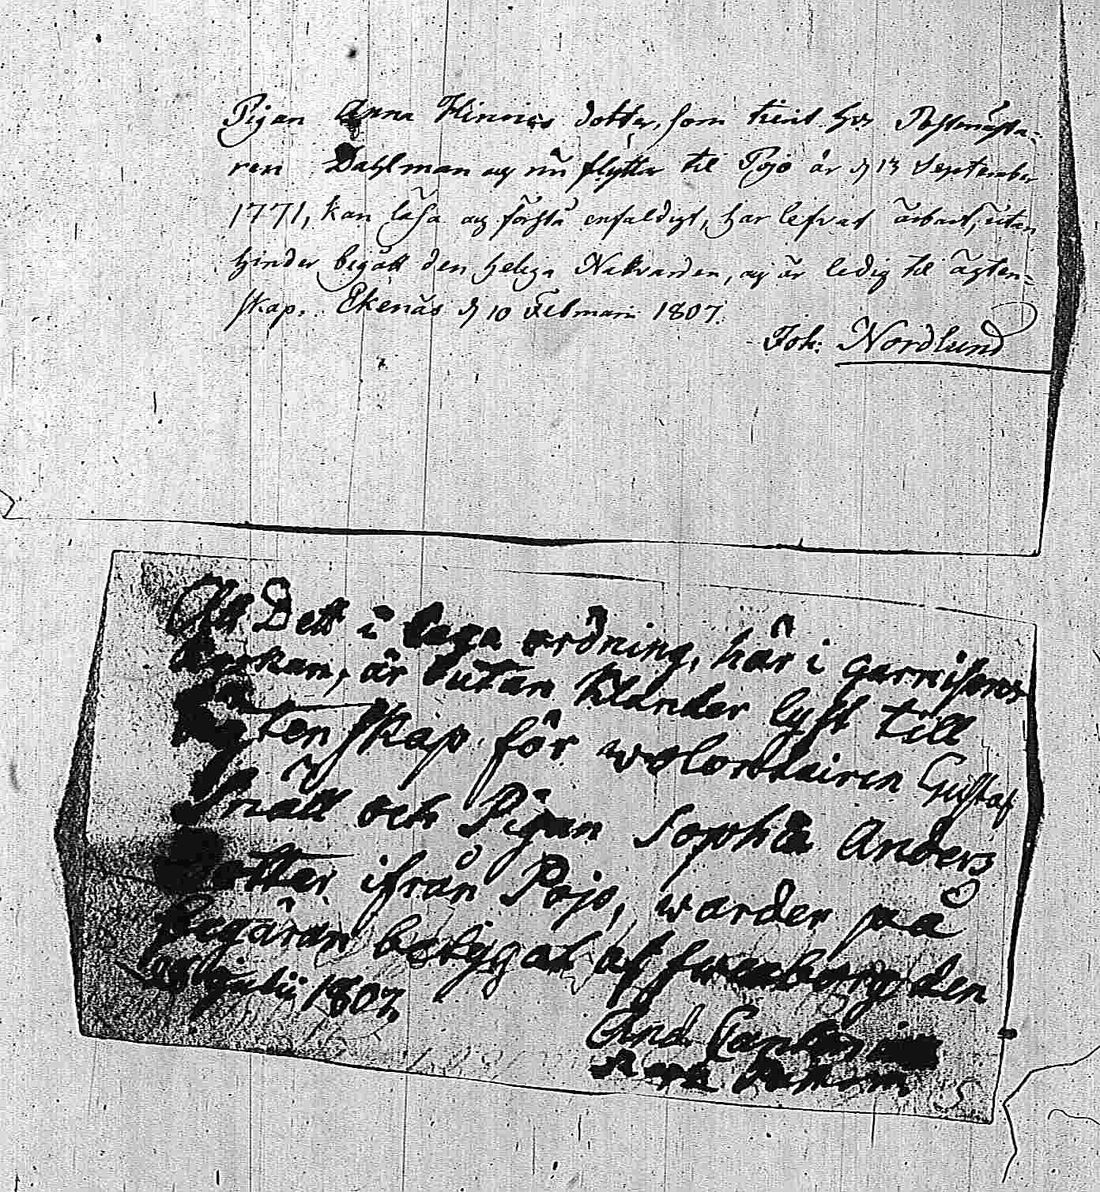 Pigan Anna Hinrics dotter, som tient hos Postmästa-
ren Dahlman og nu flyttar til Pojo är d 13 September
1771, kan läsa og förstå enfaldigt, har lefvat ärbart, utan
hinder begått den heliga Nattvarden, og är ledig til ägten-
skap. Ekenäs d 10 Februarii 1807.
Joh: Nordlund
Att Dett i laga ordning, här i garnisons
kyrkan, är utan klander lyst till
Ägtenskap för wolontairen Gustaf
Snäll och Pigan Sophia Anders
dotter ifrån Pojo, warder på
begäran betygat af Sweaborg den
Julii 1807
And.